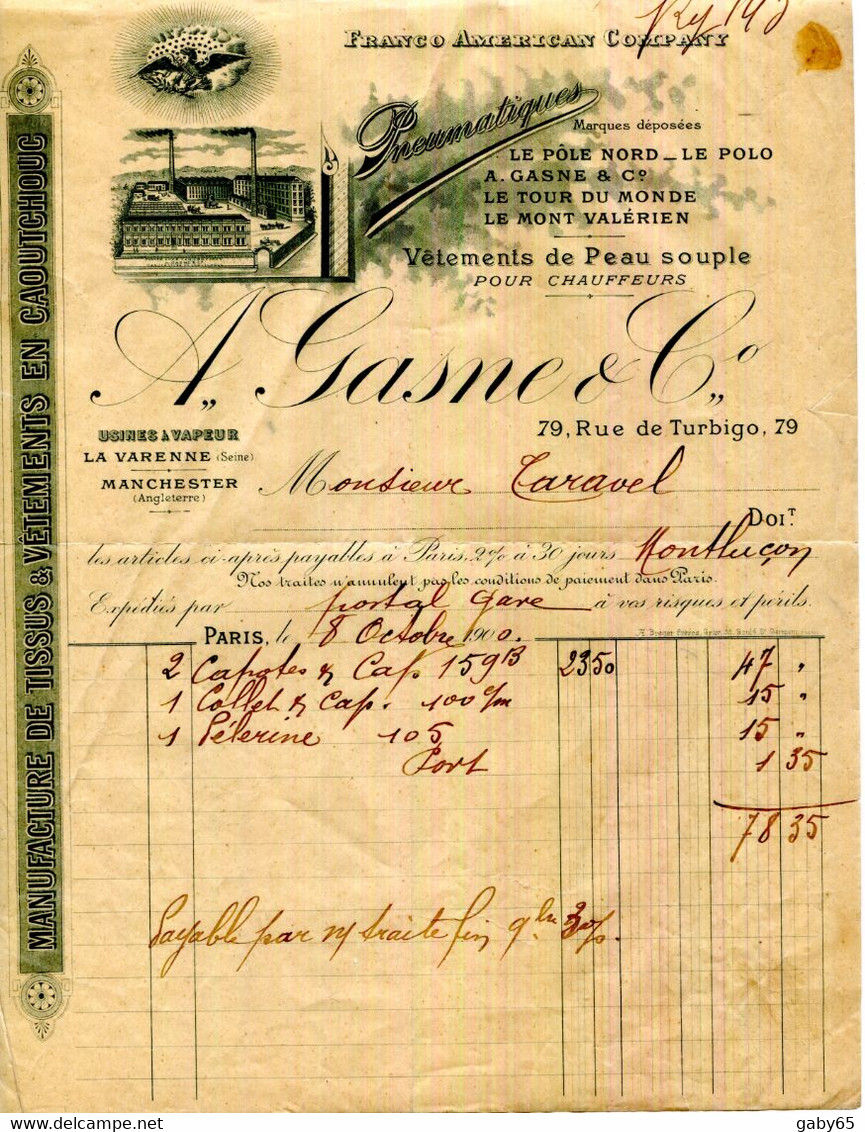 FRANCO AMERICAN COMPANY
Pneumatiques
Marques déposées
LE PÔLE NORD _ LE POLO
A. GASNE & Cº
LE TOUR DU MONDE
LE MONT VALÉRIEN
Vêtements de Peau souple
POUR CHAUFFEURS
MANUFACTURE DE TISSUS & VÊTEMENTS EN CAOUTCHOUC
A,, Gasne & C,,º
79, Rue de Turbigo, 79
USINES À VAPEUR
LA VARENNE (Seine)
MANCHESTER
(Angleterre)
Monsieur Taravel
DOIT.
les articles ci-après payables à Paris, 2% à 30 jours Montluçon
Nos traites n'annulent pas les conditions de paiement dans Paris.
Expédiés par portal gare à vos risques et périls.
PARIS, le 8 Octobre 1900.
2 Capotes & Cap 159B 23 50 47 "
1 Collet & cap. 100 c/m 15 "
1 Pèlerine 105 15 "
Port 1 35
78 35
Payable par n/ traite fin
gaby65